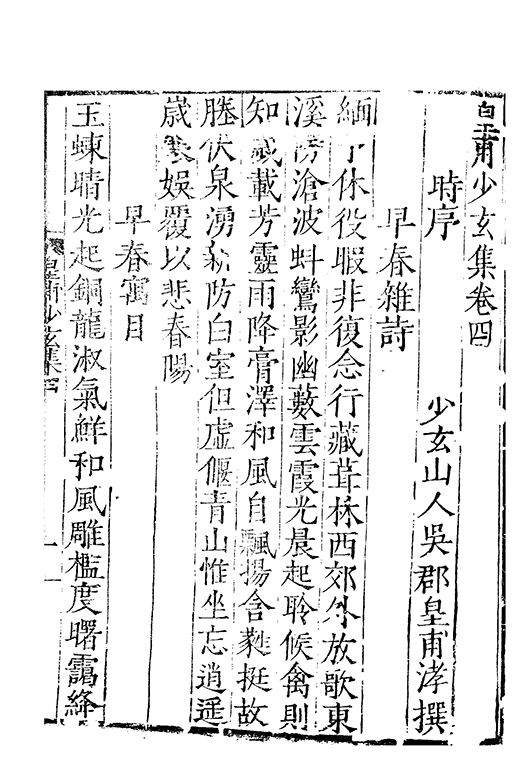 皇甫少玄集卷四
少玄山人吳郡皇甫涍撰
時序
早春雜詩
緬予休役暇非復念行藏葺林西郊外放歌東
溪傍滄波蚪鸞影幽藪雲霞光晨起聆候禽則
知歲載芳靈雨降膏澤和風自飄揚含蕤挺故
塍伏泉湧新防白室但虛偃青山惟坐忘逍遥
歲娛覆以悲春陽
早春寓目
玉蝀晴光起銅龍淑氣鮮和風雕檻度曙靄絳
皇甫少玄集四
一